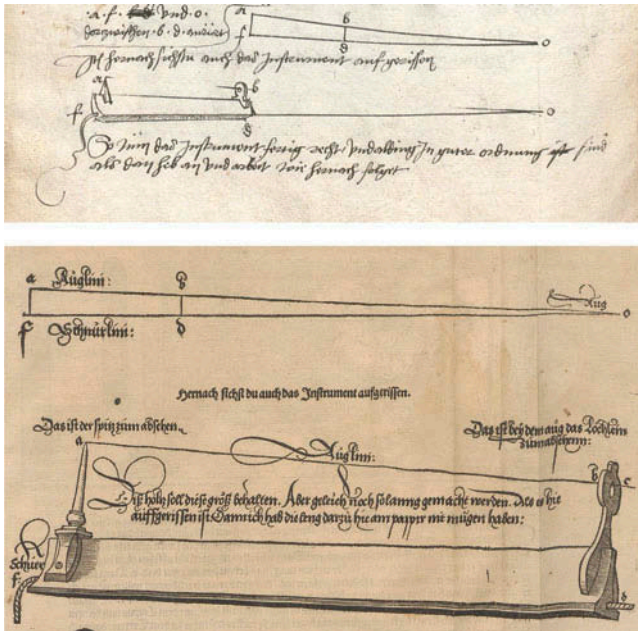 ·a·f· vnd ·o·
darzwischen ·b·d· anrürt
a
b
f
d
o
Ist hernach sichstu auch das Instrument auf gerissen
a
b
f
d
o
So nun das Instrument fertig recht vnd alding In guter ordnung ist sind
als dan heb an vnd arbeit wie hernach folget
a Auglini: b
Aug o
f Schnürlini: d
Hernach sichst du auch das Instrument aufgerissen.
Das ist der spitz zum absehen.
Das ist bey dem aug das Löchlein
zum absehenn:
a
Auglini:
b c
Diß holtz soll diese größ behalten. Aber gleich noch so lanng gemacht werden. Als es hie
auffgerissen ist. Dann ich hab die leng darzu hie am pappir nit mügen haben:
Schnür
f:
d